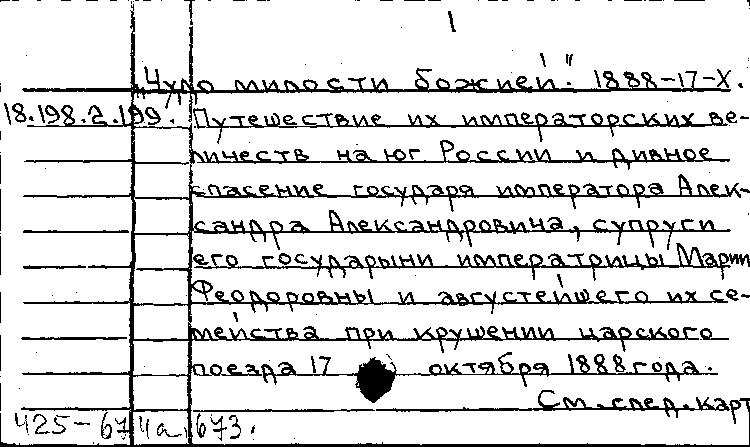 1
„Чудо милости божией." 1888-17-X.
18.198.2.199. Путешествие их императорских ве-
личеств на юг России и дивное
спасение государя императора Алек-
сандра Александровича, супруги
его государыни императрицы Марии
Феодоровны и августейшего их се-
мейства при крушении царского
поезда 17 октября 1888 года.
См. след. карт
425-674а, 673.